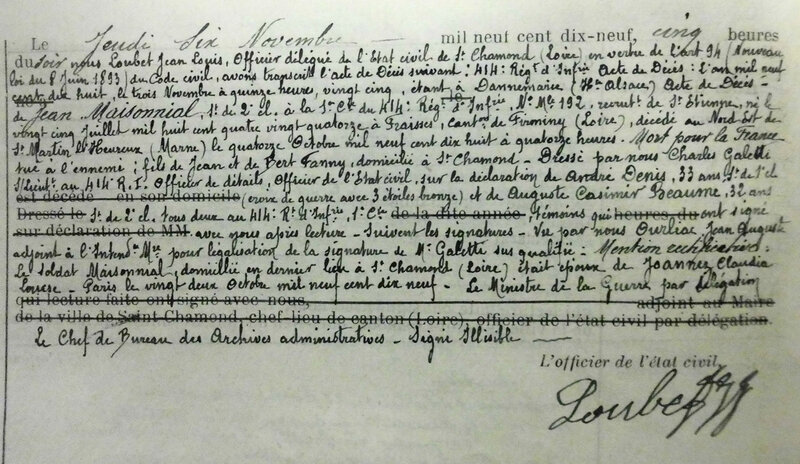 Le Jeudi Six Novembre mil neuf cent dix-neuf, cinq heures
du soir nous Loubet Jean Louis, Officier délégué de l'Etat civil de St Chamond (Loire) en vertu de l'art 94 (Nouveau
loi du 8 Juin 1893) du Code civil, avons transcrit l'acte de Décès suivant: 414: Régt d'Infrie Acte de Décès: L'an mil neuf
cent dix huit, le trois Novembre à quinze heures, vingt cinq, étant à Dannemarie (Hte Alsace) Acte de Décès -
de Jean Maisonnial, St de 2e cl. à la 1e Cie du 414: Régt d'Infrie, No Mle 192, recrutt de St Etienne, né le
vingt cinq Juillet mil huit cent quatre vingt quatorze à Fraisses, canton de Firminy (Loire), décédé au Nord Est de
St Martin l'Heureux (Marne) le quatorze Octobre mil neuf cent dix huit à quatorze heures. Mort pour la France
tué à l'ennemi; fils de Jean et de Bert Fanny, domicilié à St Chamond - Dressé par nous Charles Galette
S/Lieutt au 414e R.I. Officier de détails, Officier de l'Etat civil, sur la déclaration de André Denis, 33 ans St de 1e cl
est décédé en son domicile (croix de guerre avec 3 étoiles bronze) et de Auguste Casimir Beaume, 32 ans
Dressé le St de 2e cl. tous deux au 414: Rt d'Infrie, 1e Cie de la dite année, témoins qui heures, du ont signé
sur déclaration de MM. avec nous après lecture - Suivent les signatures - Vu par nous Ourliac Jean Auguste
adjoint à l'Intendce Mre pour légalisation de la signature de Mr Galette sus qualifié - Mention rectificative:
Le soldat Maisonnial, domicilié en dernier lieu à St Chamond (Loire) était époux de Joannez Claudia
- Paris le vingt deux Octobre mil neuf cent dix neuf - Le Ministre de la Guerre par délégation
qui lecture faite ont signé avec nous, adjoint au Maire
de la ville de Saint-Chamond, chef-lieu de canton (Loire), officier de l'état civil par délégation.
Le Chef de Bureau des Archives administratives - Signé Illisible
L'officier de l'état civil,
Loubet